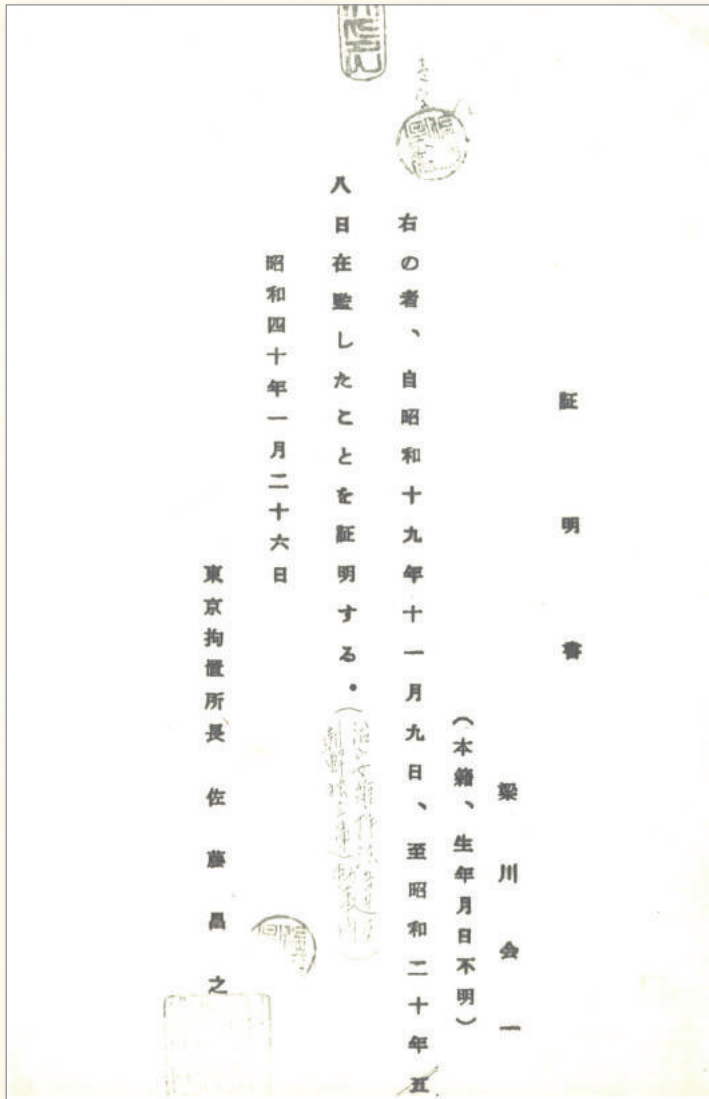 証明書
梁川会一
（本籍、生年月日不明）
右の者、自昭和十九年十一月九日、至昭和二十年五
八日在監したことを証明する。
昭和四十年一月二十六日
東京拘置所長 佐藤昌之